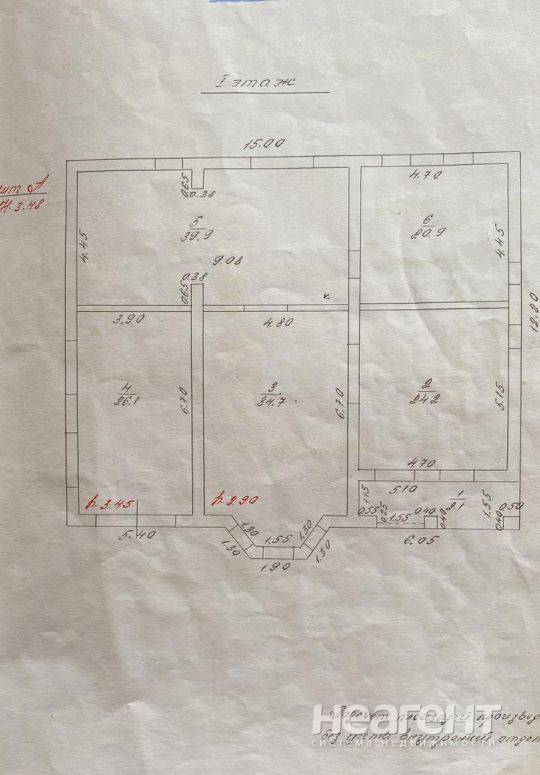 I этаж
15.00
лит А
H.3.48
0.65
0.38
4.70
5
39.9
6
20.9
4.45
4.45
9.08
0.38
0.65
к
12.80
3.90
4.80
4
26.1
6.70
3
34.7
6.70
2
24.2
5.15
4.70
h.3.45
h.2.90
5.10
1
2.1
1.15
0.55
0.25
1.55
0.40
0.40
1.55
0.40
0.50
5.40
1.30
1.30
1.55
1.90
1.30
1.30
6.05
площади произвед
без учета внутренней отдел
неагент
система недвижимости